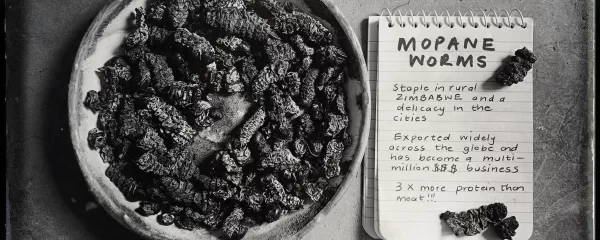 MOPANE
WORMS
Staple in rural
ZIMBABWE and a
delicacy in the
cities
Exported widely
across the globe and
has become a multi-
million $$$ business
3 x more protein than
meat!!!